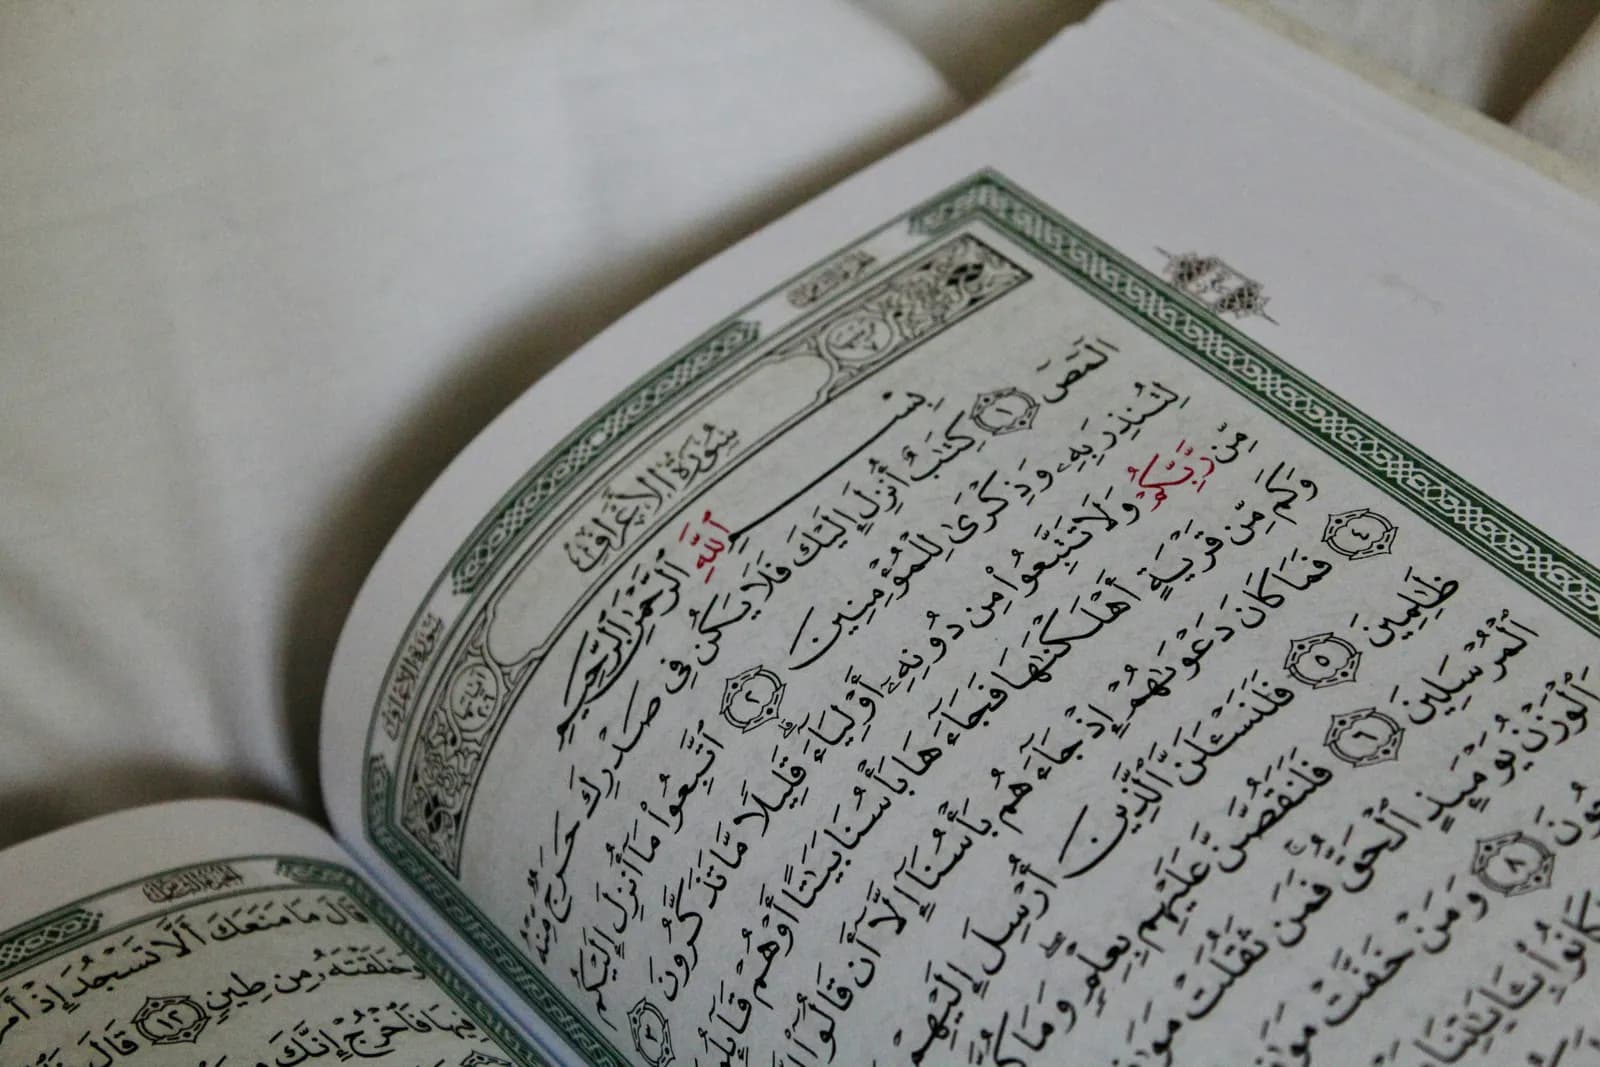 سُورَةُ الأَعْرَافِ
بِسْمِ ٱللَّهِ ٱلرَّحْمَٰنِ ٱلرَّحِيمِ
الٓمٓصٓ ١ كِتَٰبٌ أُنزِلَ إِلَيْكَ فَلَا يَكُن فِى صَدْرِكَ حَرَجٌ مِّنْهُ
لِتُنذِرَ بِهِۦ وَذِكْرَىٰ لِلْمُؤْمِنِينَ ٢ ٱتَّبِعُوا۟ مَآ أُنزِلَ إِلَيْكُم
مِّن رَّبِّكُمْ وَلَا تَتَّبِعُوا۟ مِن دُونِهِۦٓ أَوْلِيَآءَ ۗ قَلِيلًا مَّا تَذَكَّرُونَ ٣
وَكَم مِّن قَرْيَةٍ أَهْلَكْنَٰهَا فَجَآءَهَا بَأْسُنَا بَيَٰتًا أَوْ هُمْ قَآئِلُونَ
٤ فَمَا كَانَ دَعْوَىٰهُمْ إِذْ جَآءَهُم بَأْسُنَآ إِلَّآ أَن قَالُوٓا۟
ظَٰلِمِينَ ٥ فَلَنَسْـَٔلَنَّ ٱلَّذِينَ أُرْسِلَ إِلَيْهِمْ
ٱلْمُرْسَلِينَ ٦ فَلَنَقُصَّنَّ عَلَيْهِم بِعِلْمٍ ۖ وَمَا
ٱلْوَزْنُ يَوْمَئِذٍ ٱلْحَقُّ ۚ فَمَن ثَقُلَتْ
٨ وَمَنْ خَفَّتْ
كَانُوا۟ بِـَٔايَٰتِنَا
قَالَ مَا مَنَعَكَ أَلَّا تَسْجُدَ إِذْ
وَخَلَقْتَهُۥ مِن طِينٍ ١٢ قَالَ
فِيهَا فَٱخْرُجْ إِنَّكَ